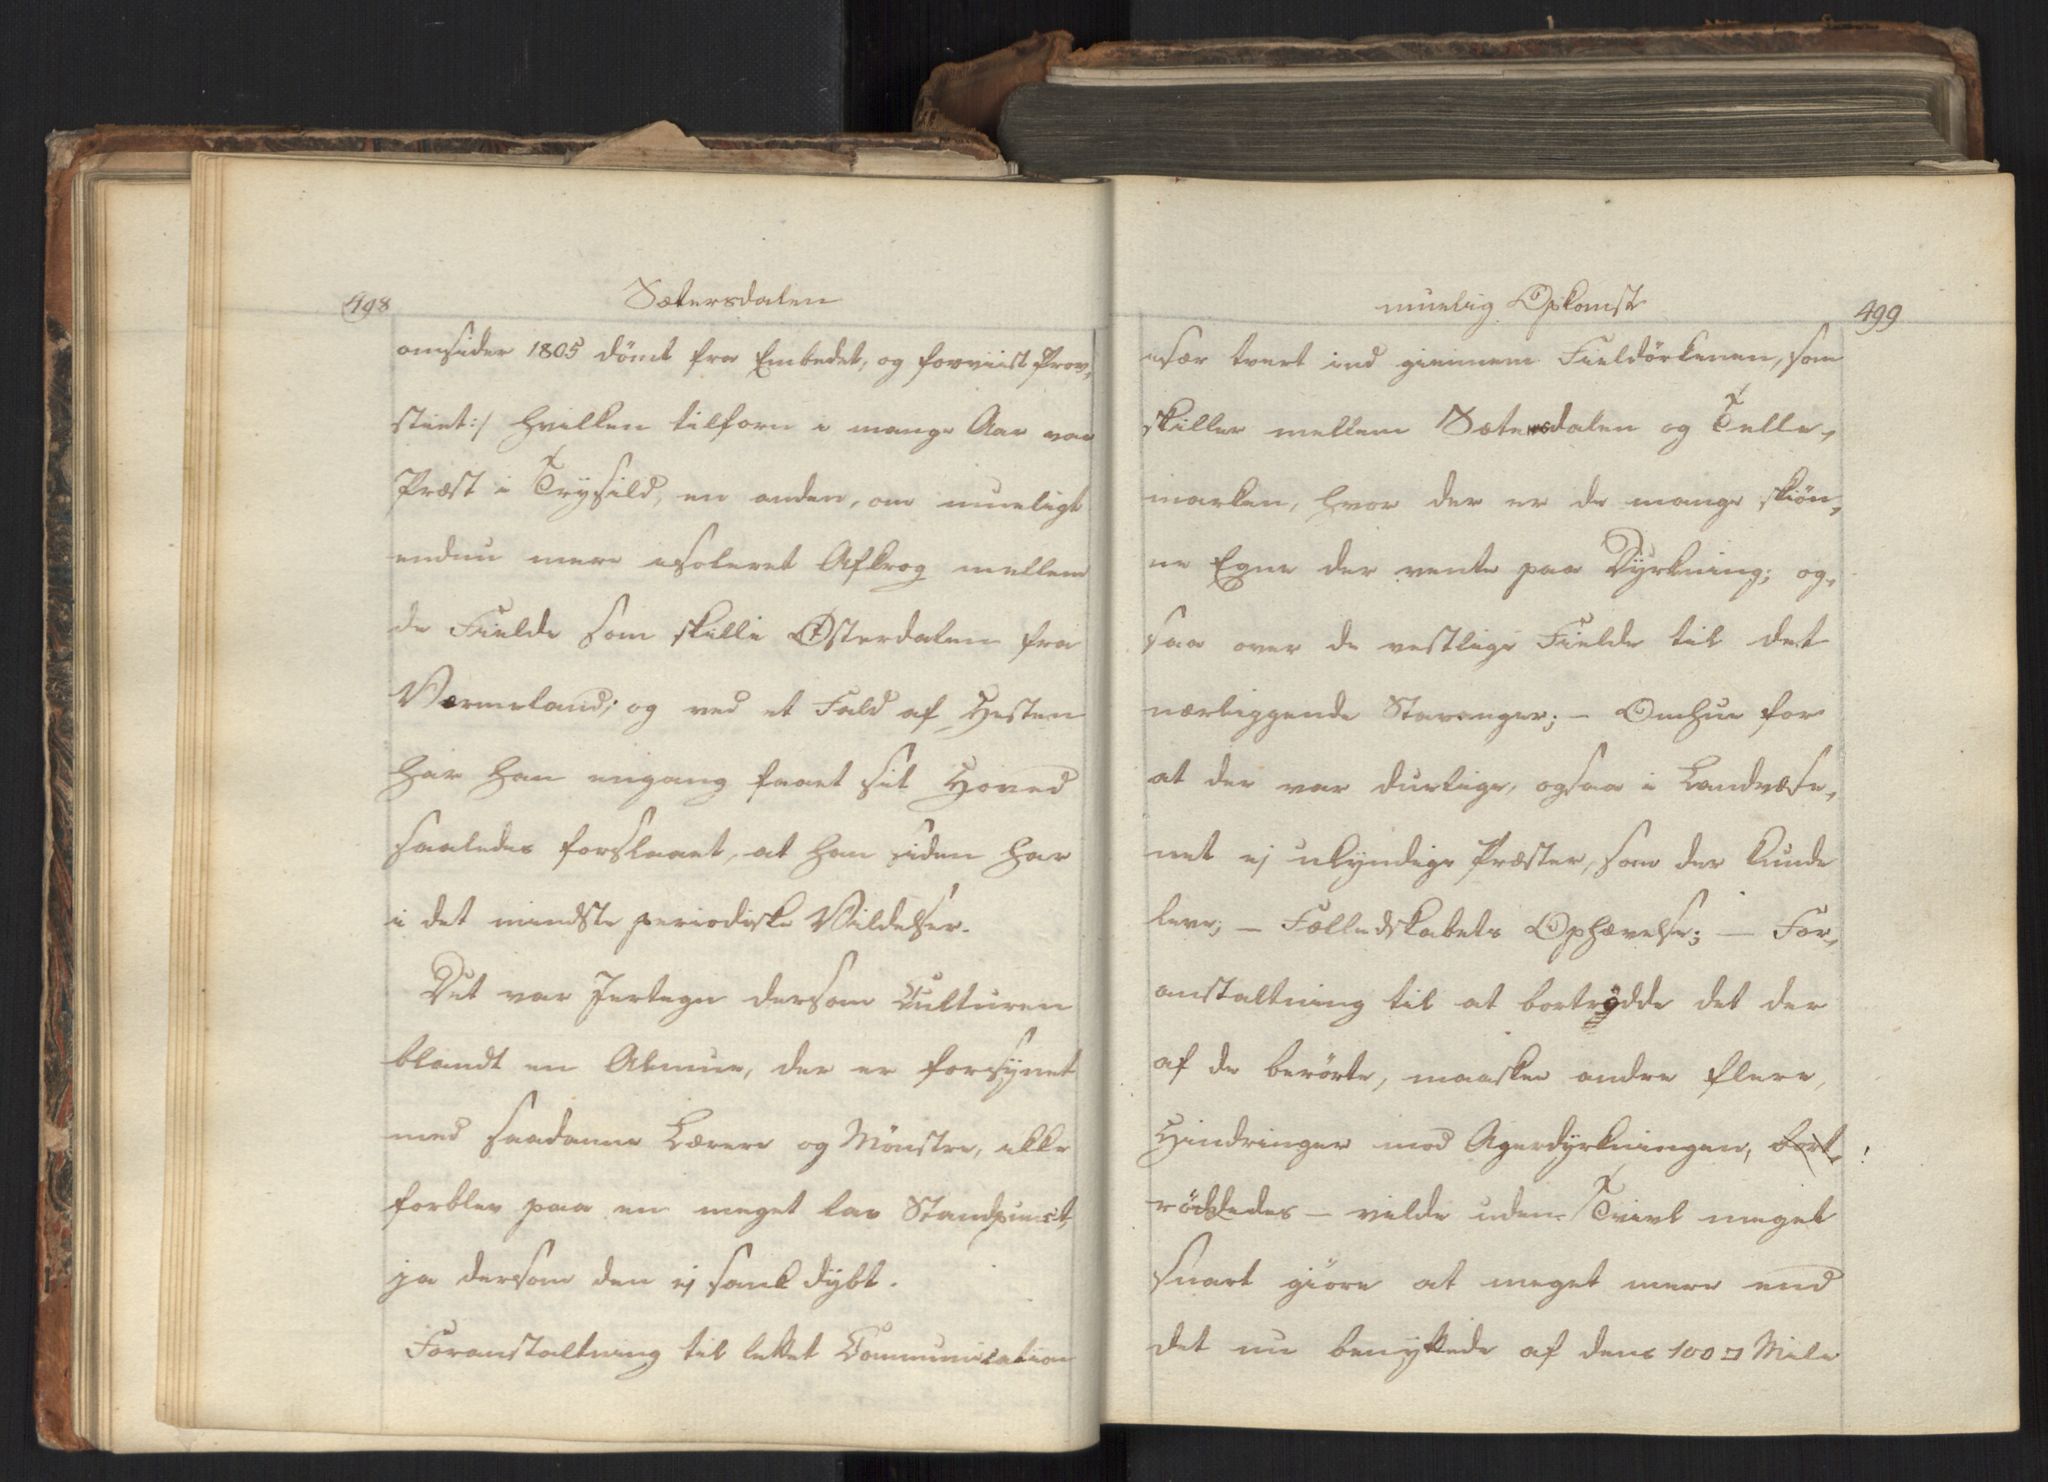 498
Sætersdalen
omsider 1805 dömt fra Embedet, og forviist Prov,
stiet:/ hvilken tilforn i mange Aar var
Præst i Trysild, en anden, om mueligt
endnu mere isoleret Afkrog mellem
de Fielde som skille Østerdalen fra
Værmeland; og ved et Fald af Hesten
har han engang faaet sit Hoved
saaledes forslaaet, at han siden har
i det mindste periodiske Vildelser.
Det var Jertegn dersom Culturen
blandt en Almue, der er forsynet
med saadanne Lærere og Mönstre, ikke
forblev paa en meget lav Standpunct,
ja dersom den ej sank dybt.
Foranstaltning til lettet Communication
muelig Opkomst
499
især tvert ind giennem Fieldörkenen, som
skiller mellem Sætersdalen og Telle,
marken, hvor der er de mange skiön,
ne Egne der vente paa Dyrkning; og,
saa over de vestlige Fielde til det
nærliggende Stavanger; – Omhue for
at der var duelige, ogsaa i Landvæse,
net ej ukyndige Præster, som der kunde
leve; – Fælledskabets Ophævelse; – For,
anstaltning til at bortrydde det der
af de berörte, maaskee andre flere,
Hindringer mod Agerdyrkningen, bort, !
röddedes – vilde uden Tvivl meget
snart giöre at meget mere end
det nu benyttede af dens 100 □ Mile